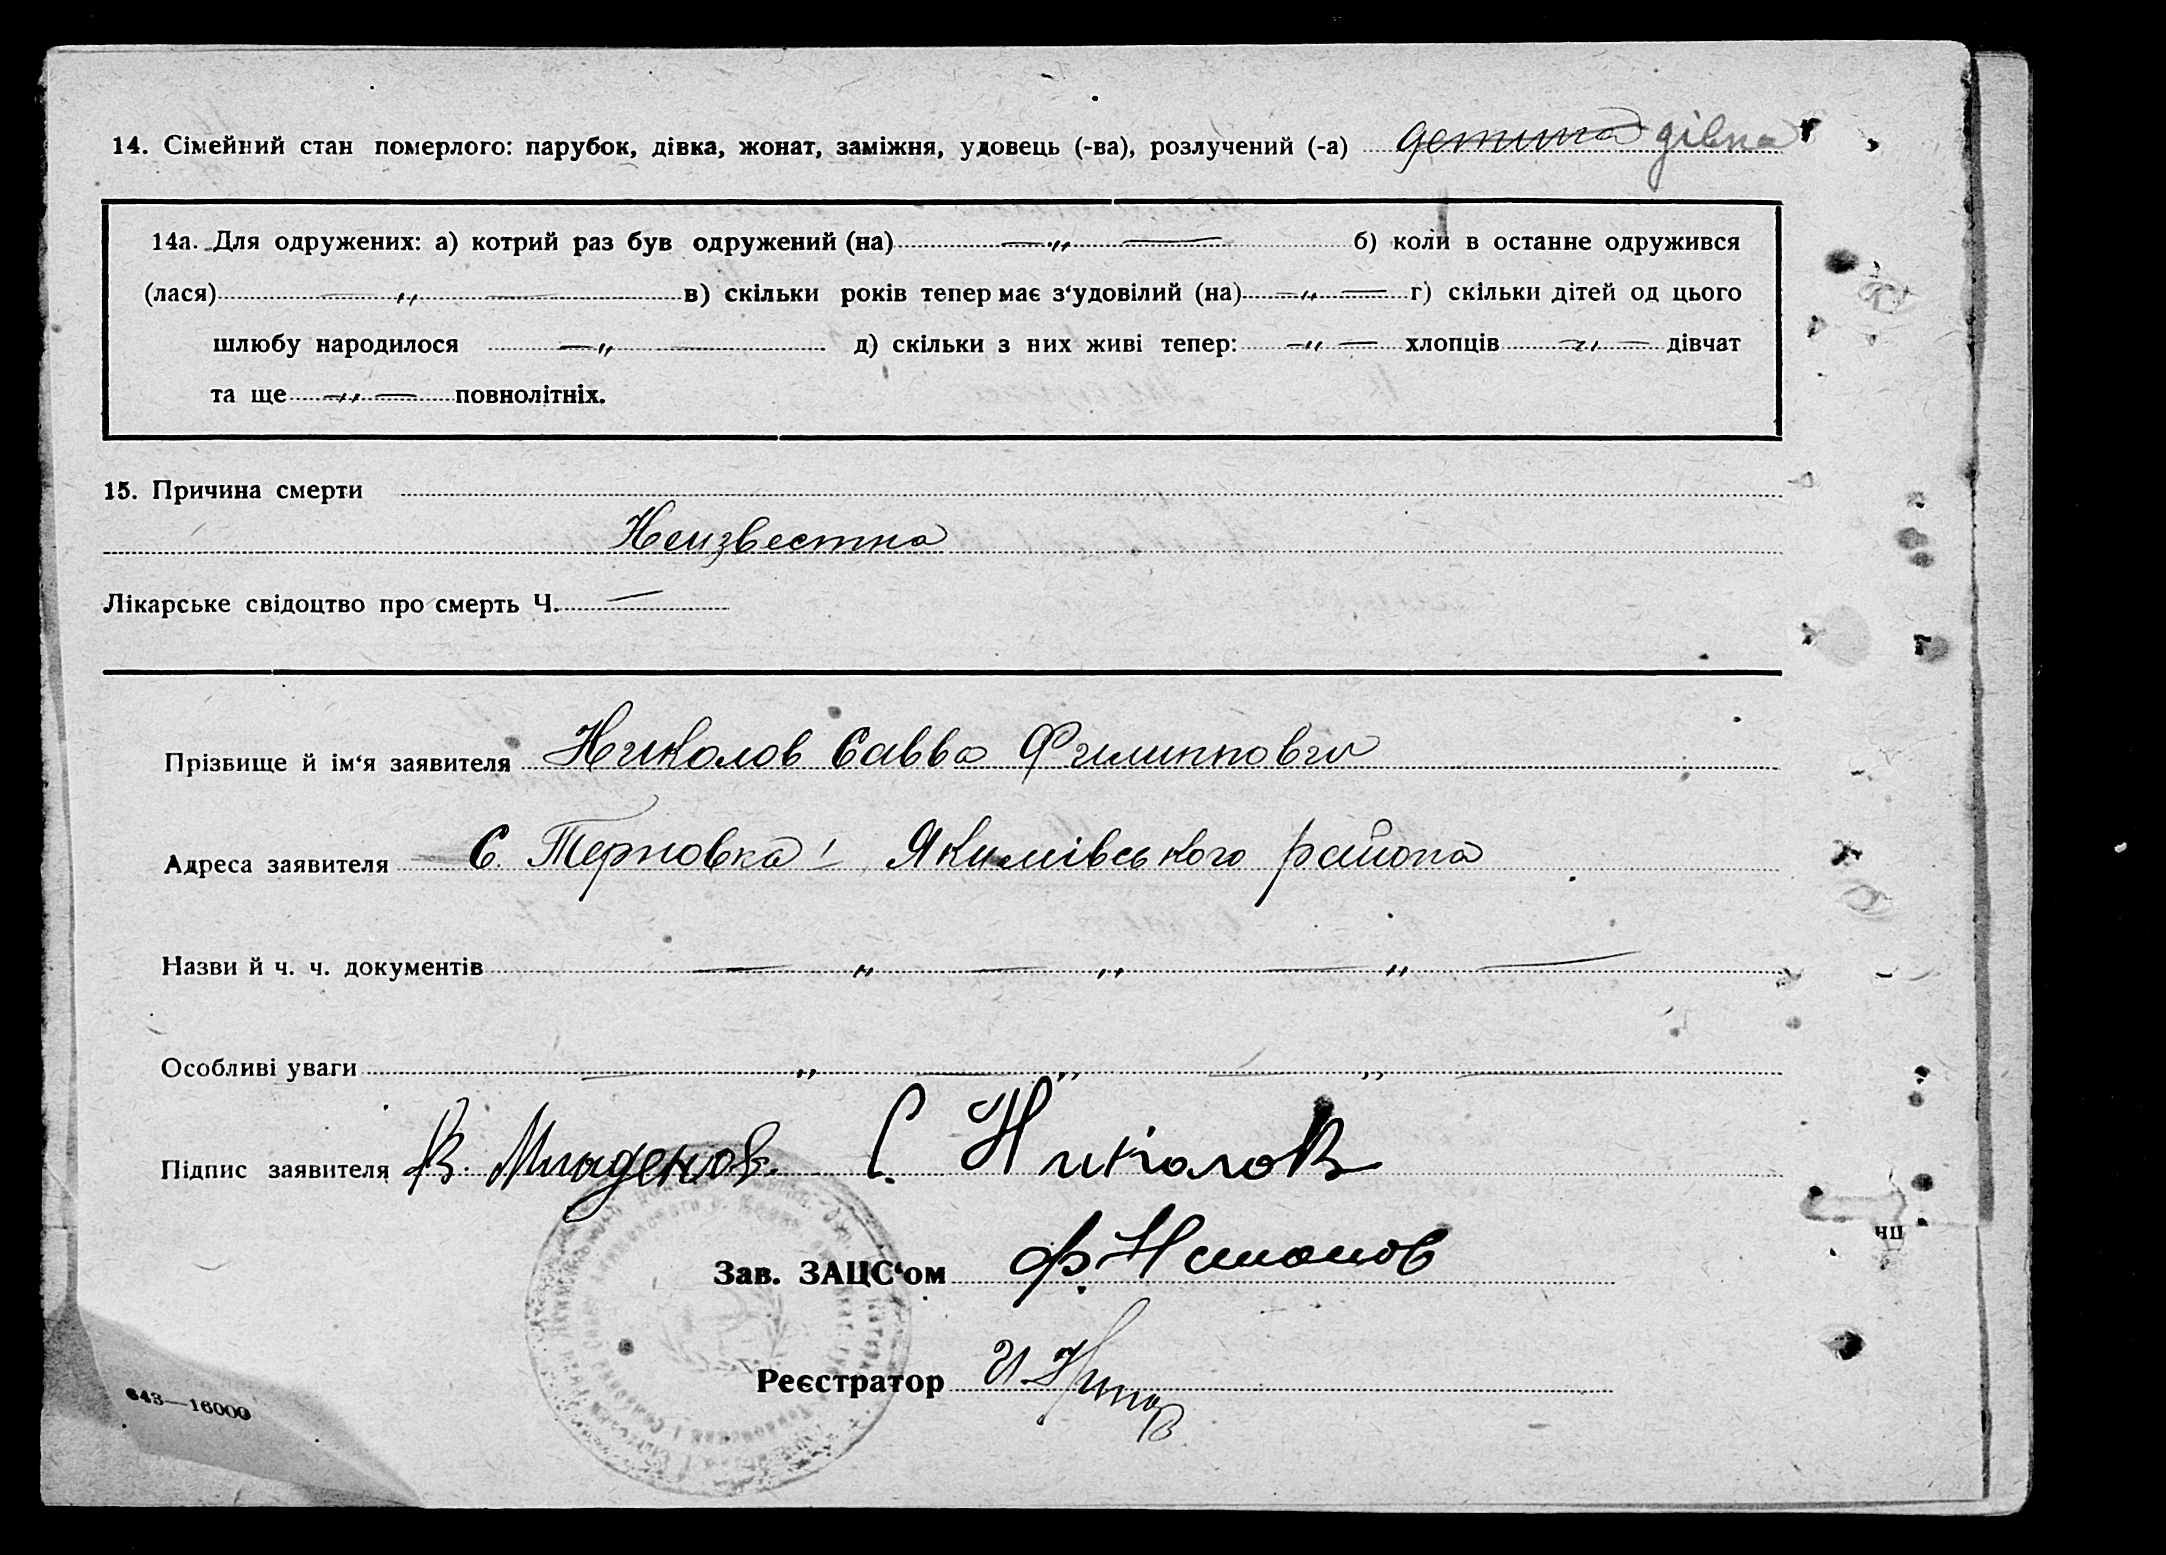 14. Сімейний стан померлого: парубок, дівка, жонат, заміжня, удовець (-ва), розлучений (-а) детина дівка
14а. Для одружених: а) котрий раз був одружений (на) — „ — б) коли в останне одружився
(лася) — „ — в) скільки років тепер має з‘удовілий (на) — „ — г) скільки дітей од цього
шлюбу народилося — „ — д) скільки з них живі тепер: — „ — хлопців — „ — дівчат
та ще — „ — повнолітніх.
15. Причина смерти
Неизвестна
Лікарське свідоцтво про смерть Ч. —
Прізвище й ім‘я заявителя Николов Савва Филиппович
Адреса заявителя С. Терновка Якимівського района
Назви й ч. ч. документів — „ — „ — „ —
Особливі уваги — „ — „ — „ —
Підпис заявителя В. Младенов. С. Николов
Зав. ЗАЦС‘ом Ф.
Реєстратор И.
643—16000